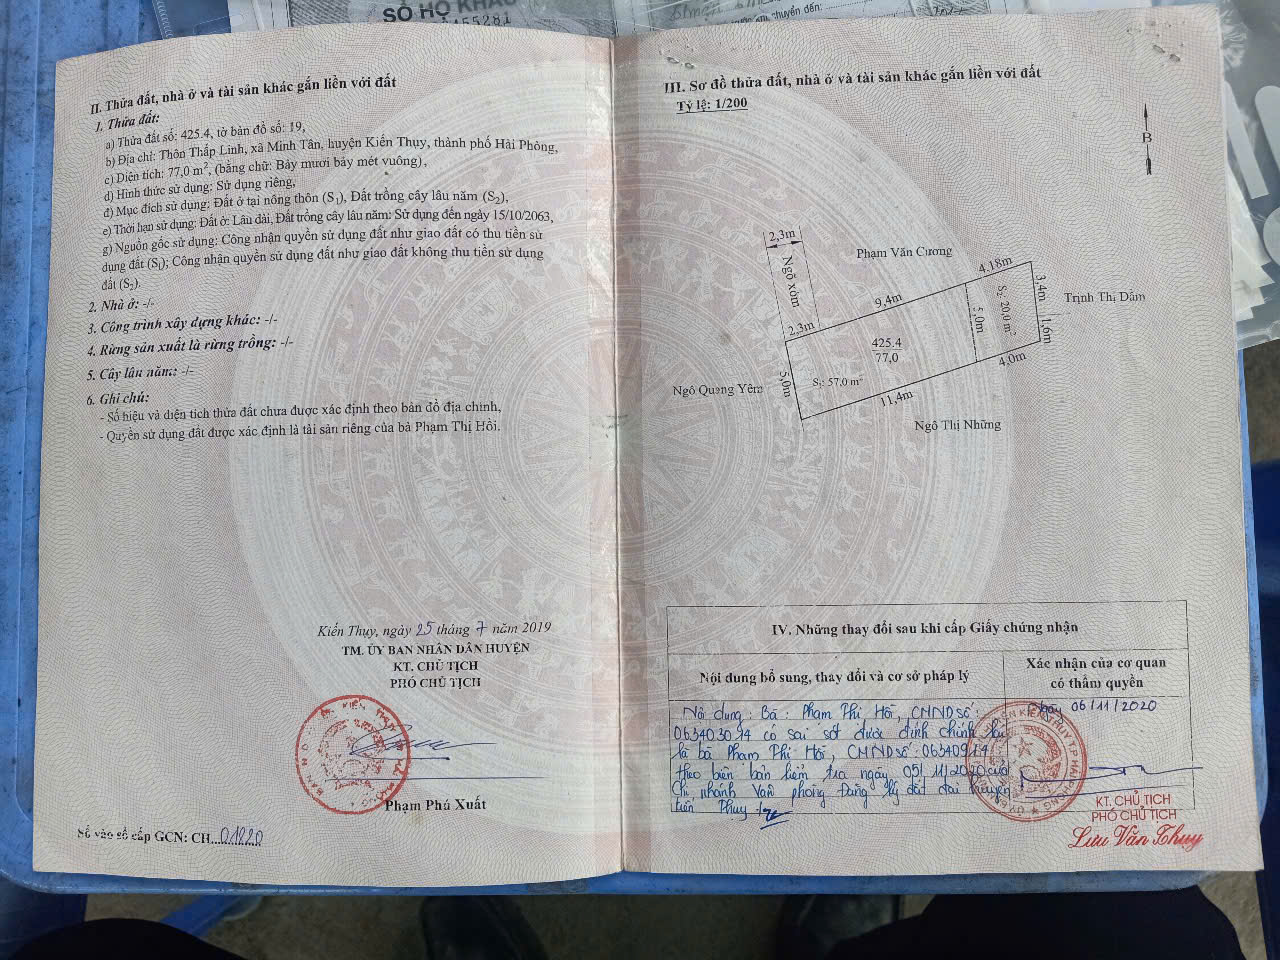 SỔ HỘ KHẨ
455281
chuyển đến:
II. Thửa đất, nhà ở và tài sản khác gắn liền với đất
1. Thửa đất:
a) Thửa đất số: 425.4, tờ bản đồ số: 19,
b) Địa chỉ: Thôn Thấp Linh, xã Minh Tân, huyện Kiến Thụy, thành phố Hải Phòng,
c) Diện tích: 77,0 m², (bằng chữ: Bảy mươi bảy mét vuông),
d) Hình thức sử dụng: Sử dụng riêng,
đ) Mục đích sử dụng: Đất ở tại nông thôn (S₁), Đất trồng cây lâu năm (S₂),
e) Thời hạn sử dụng: Đất ở: Lâu dài, Đất trồng cây lâu năm: Sử dụng đến ngày 15/10/2063,
g) Nguồn gốc sử dụng: Công nhận quyền sử dụng đất như giao đất có thu tiền sử
dụng đất (S₁); Công nhận quyền sử dụng đất như giao đất không thu tiền sử dụng
đất (S₂).
2. Nhà ở: -/-
3. Công trình xây dựng khác: -/-
4. Rừng sản xuất là rừng trồng: -/-
5. Cây lâu năm: -/-
6. Ghi chú:
- Số hiệu và diện tích thửa đất chưa được xác định theo bản đồ địa chính,
- Quyền sử dụng đất được xác định là tài sản riêng của bà Phạm Thị Hồi.
Kiến Thụy, ngày 25 tháng 7 năm 2019
TM. ỦY BAN NHÂN DÂN HUYỆN
KT. CHỦ TỊCH
PHÓ CHỦ TỊCH
Phạm Phú Xuất
Số vào sổ cấp GCN: CH...01220
III. Sơ đồ thửa đất, nhà ở và tài sản khác gắn liền với đất
Tỷ lệ: 1/200
B
2,3m
Ngõ xóm
Phạm Văn Cương
4,18m
3,4m
Trịnh Thị Dầm
9,4m
S₂: 20,0 m²
2,3m
5,0m
1,6m
425.4
77,0
4,0m
Ngô Quang Yêm
5,0m
S₁: 57,0 m²
11,4m
Ngô Thị Những
IV. Những thay đổi sau khi cấp Giấy chứng nhận
Nội dung bổ sung, thay đổi và cơ sở pháp lý
Xác nhận của cơ quan
có thẩm quyền
Nội dung: Bà: Phạm Thị Hồi, CMND số:
Ngày 06/11/2020
có sai sót được đính chính
là bà Phạm Thị Hồi, CMND số:
theo biên bản kiểm tra ngày 05/11/2020 của
Chi nhánh Văn phòng Đăng ký đất đai huyện
Kiến Thụy
KT. CHỦ TỊCH
PHÓ CHỦ TỊCH
Lưu Văn Thụy